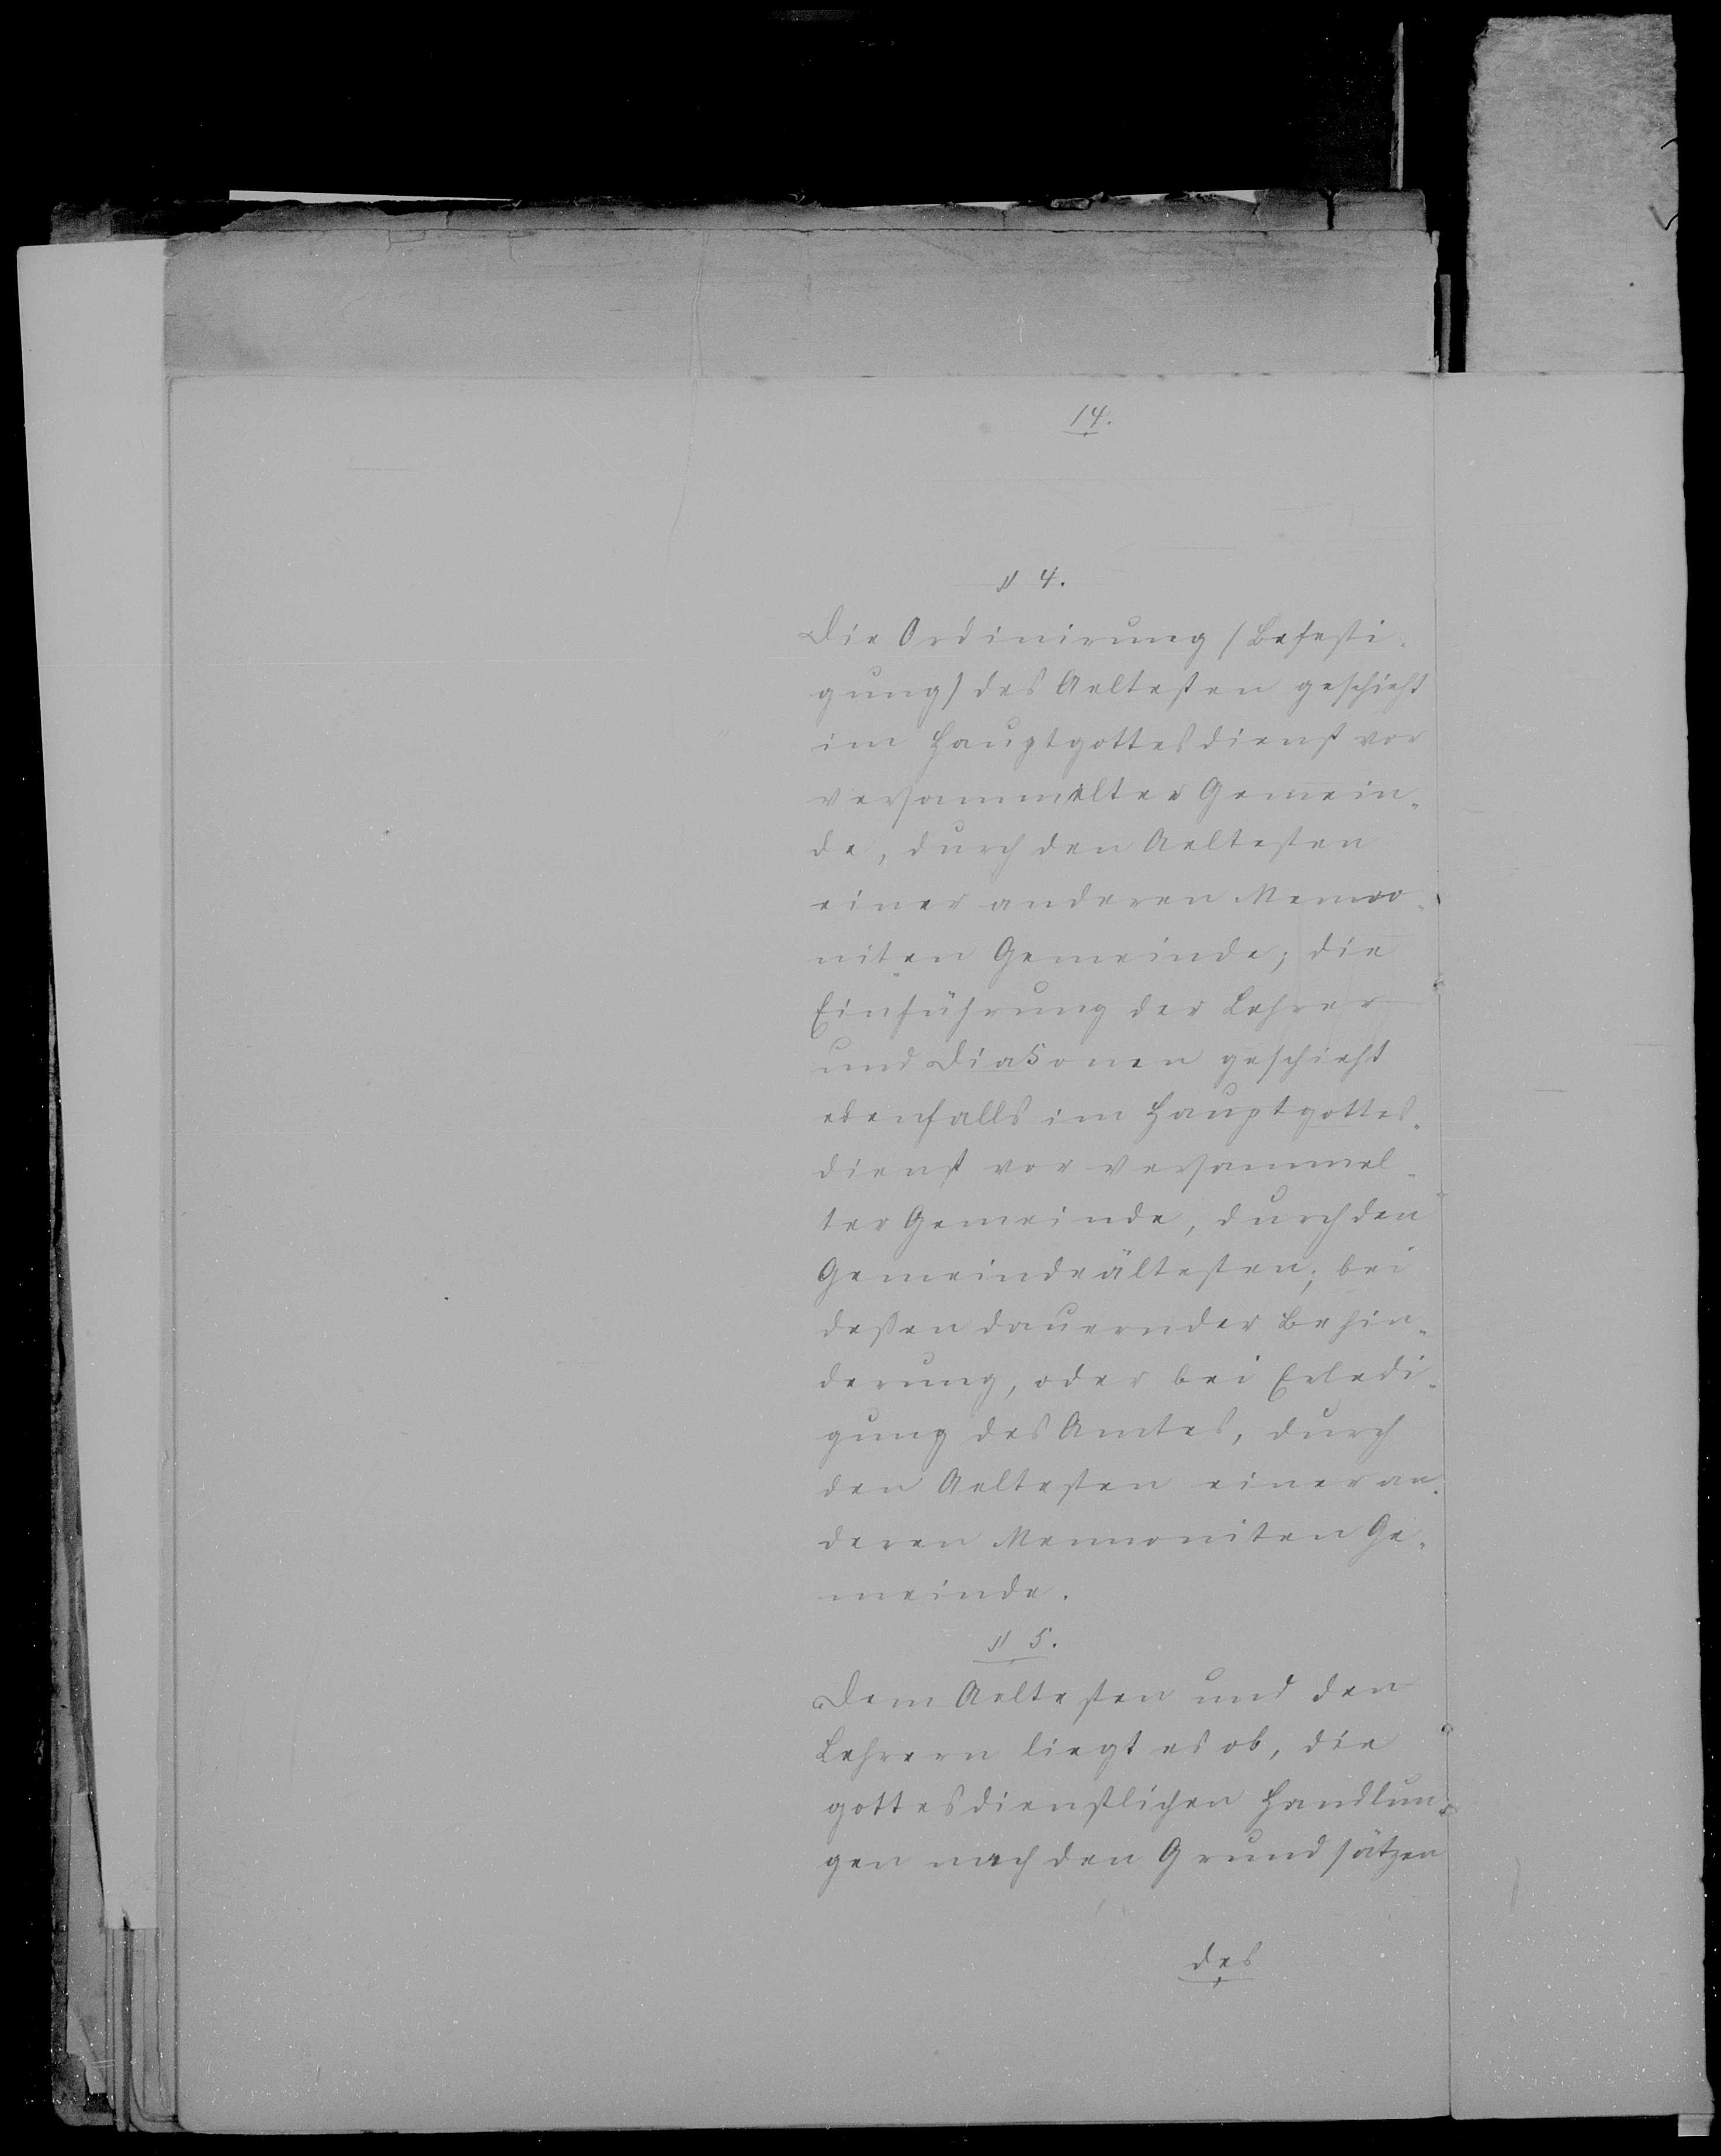 14.
§ 4.
Die Ordinirung /Befesti-
gung/ des Aeltesten geschieht
im Hauptgottesdienst vor
versammelter Gemein-
de, durch den Aeltesten
einer anderen Menno-
niten Gemeinde; die
Einführung der Lehrer
und Diakonen geschieht
ebenfalls im Hauptgottes-
dienst vor versammel-
ter Gemeinde, durch den
Gemeindeältesten; bei
deßen dauernder Behin-
derung, oder bei Erledi-
gung des Amtes, durch
den Aeltesten einer an-
deren Mennoniten Ge-
meinde.
§ 5.
Dem Aeltesten und den
Lehrern liegt es ob, die
gottesdienstlichen Handlun-
gen nach den Grundsätzen
des